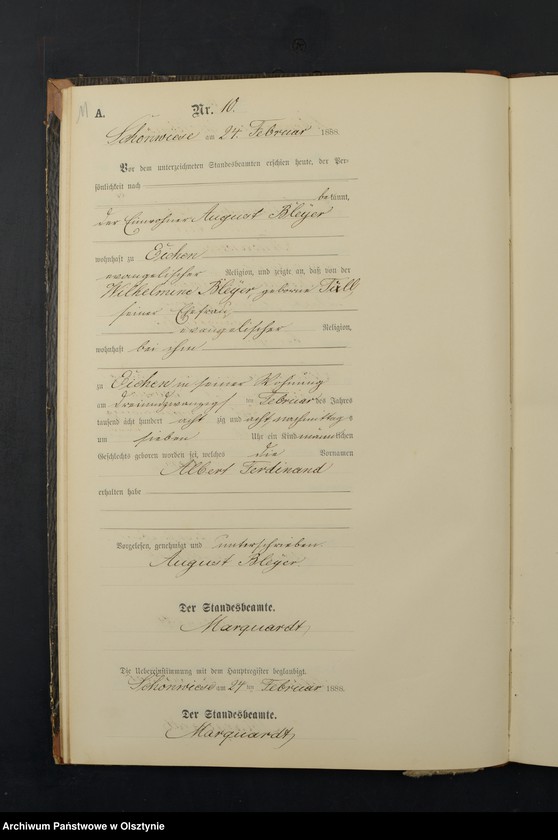 11
A.
Nr. 10.
Schönwiese am 24. Februar 1888.
Vor dem unterzeichneten Standesbeamten erschien heute, der Per-
sönlichkeit nach
bekannt,
der Einwohner August Bleyer
wohnhaft zu Eichen
evangelischer Religion, und zeigte an, daß von der
Wilhelmine Bleyer, geborne
seiner Ehefrau,
evangelischer Religion,
wohnhaft bei ihm
zu Eichen in seiner Wohnung
am dreiundzwanzigsten Februar des Jahres
tausend acht hundert achtzig und acht nachmittags
um sieben Uhr ein Kind männlichen
Geschlechts geboren worden sei, welches die Vornamen
Albert Ferdinand
erhalten habe
Vorgelesen, genehmigt und unterschrieben
August Bleyer
Der Standesbeamte.
Marquardt,
Die Uebereinstimmung mit dem Hauptregister beglaubigt.
Schönwiese am 24 ten Februar 1888.
Der Standesbeamte.
Marquardt,
Archiwum Państwowe w Olsztynie